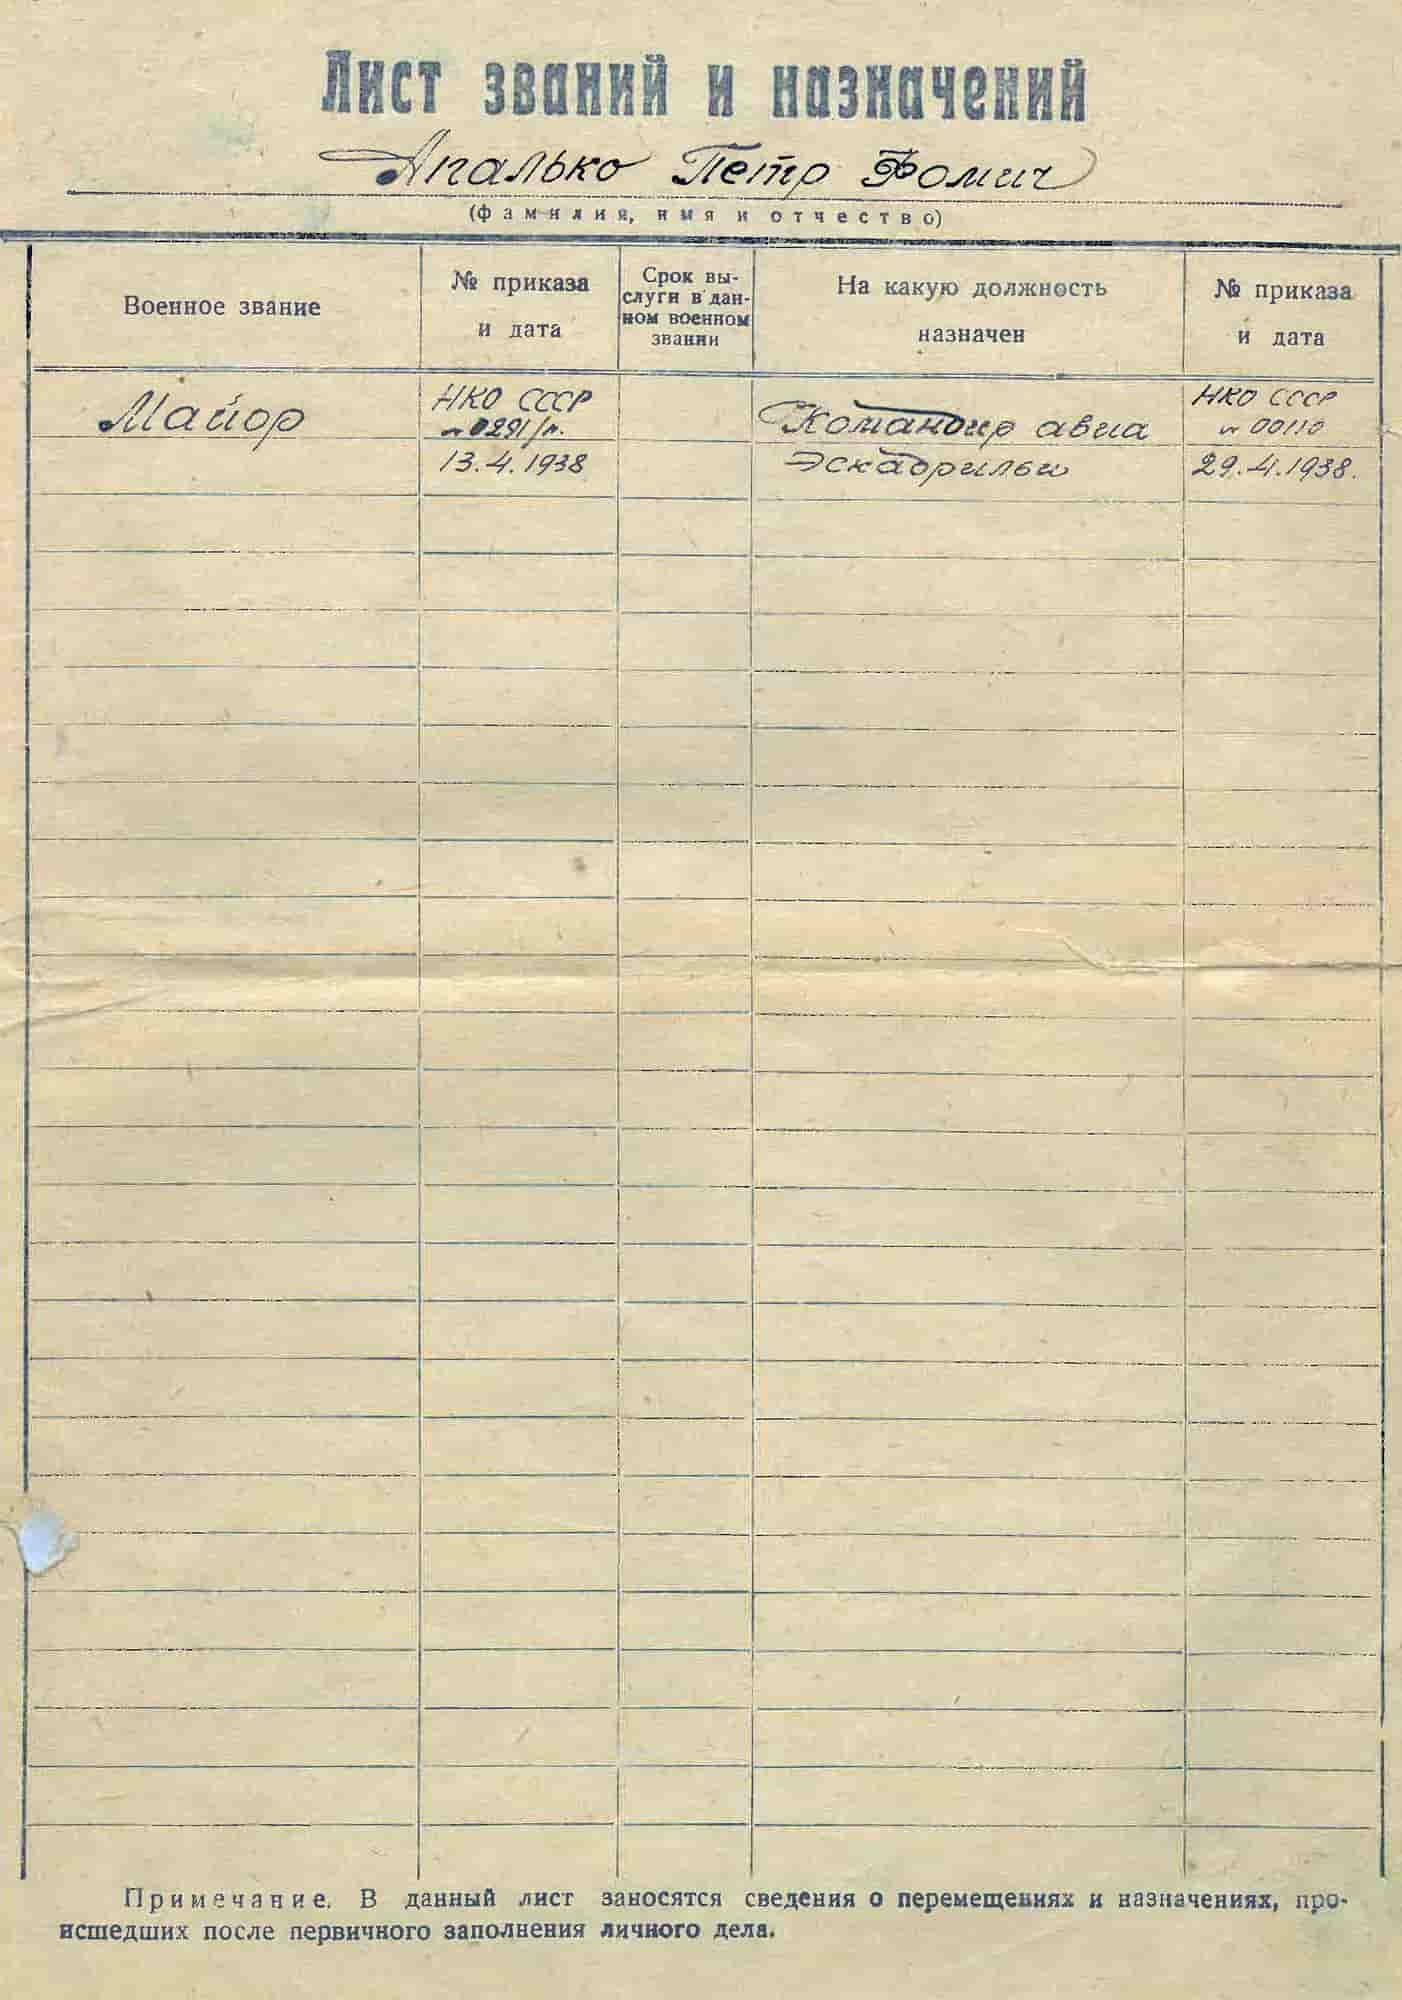 Лист званий и назначений
Апалько Петр Фомич
(фамилия, имя и отчество)
Военное звание
№ приказа
и дата
Срок вы-
слуги в дан-
ном военном
звании
На какую должность
назначен
№ приказа
и дата
Майор
НКО СССР
№ 0291/п.
13.4.1938
Командир авиа
эскадрильи
НКО СССР
№ 00110
29.4.1938.
Примечание. В данный лист заносятся сведения о перемещениях и назначениях, про-
исшедших после первичного заполнения личного дела.